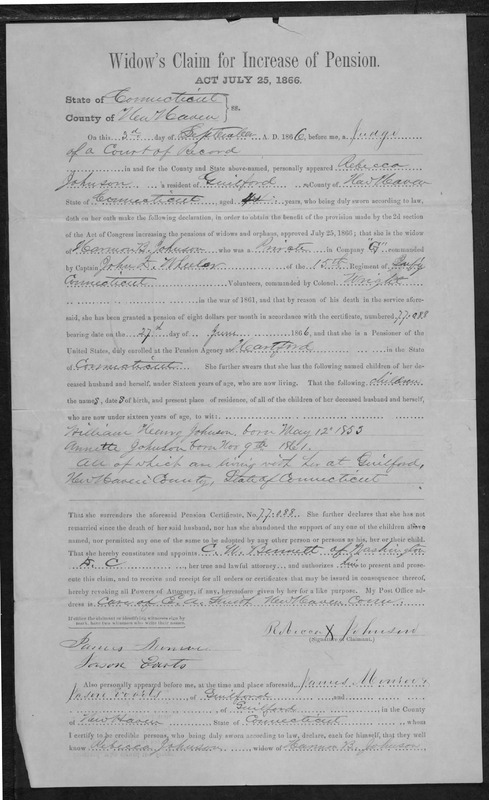 Widow's Claim for Increase of Pension.
ACT JULY 25, 1866.
State of Connecticut
County of New Haven } ss.
On this 3d day of September A. D. 1866, before me, a Judge
of a Court of Record
in and for the County and State above-named, personally appeared Rebecca
Johnson a resident of Guilford County of New Haven
State of Connecticut aged 44 years, who being duly sworn according to law,
doth on her oath make the following declaration, in order to obtain the benefit of the provision made by the 2d section
of the Act of Congress increasing the pensions of widows and orphans, approved July 25, 1866; that she is the widow
of Harmon B. Johnson who was a Private in Company "G" commanded
by Captain John A. Wheeler of the 15th Regiment of
Connecticut Volunteers, commanded by Colonel Wright
in the war of 1861, and that by reason of his death in the service afore-
said, she has been granted a pension of eight dollars per month in accordance with the certificate, numbered 77.088
bearing date on the 27th day of June 1866, and that she is a Pensioner of the
United States, duly enrolled at the Pension Agency Heartford in the State
of Connecticut She further swears that she has the following named children of her de-
ceased husband and herself, under Sixteen years of age, who are now living. That the following children
the names, dates of birth, and present place of residence, of all the children of her deceased husband and herself,
who are now under sixteen years of age, to wit:
William Henry Johnson, born May 12 1853
Annette Johnson born Nov 9th 1861.
All of which are living with her at Guilford,
New Haven County, State of Connecticut
That she surrenders the aforesaid Pension Certificate, No. 77.088 She further declares that she has not
remarried since the death of her said husband, nor has she abandoned the support of any one of the children above
named, nor permitted any one of the same to be adopted by any other person or persons as his, her or their child.
That she hereby constitutes and appoints C. W. Bennett of Washington
D. C. her true and lawful attorney and authorizes him to present and prose-
cute this claim, and to receive and receipt for all orders or certificates that may be issued in consequence thereof,
hereby revoking all Powers of Attorney, if any, heretofore given by her for a like purpose. My Post Office ad-
dress is Care of New Haven Conn.
If either the claimant or identifying witnesses sign by
mark, have two witnesses who write their names.
Rebecca X Johnson
(Signature of Claimant.)
James Monroe
Jason
Also personally appeared before me, at the time and place aforesaid, James Monroe
Jason of Guilford and
of Guilford in the County
of New Haven State of Connecticut whom
I certify to be credible persons, who being duly sworn according to law, declare, each for himself, that they well
know Rebecca Johnson widow of Harmon B. Johnson